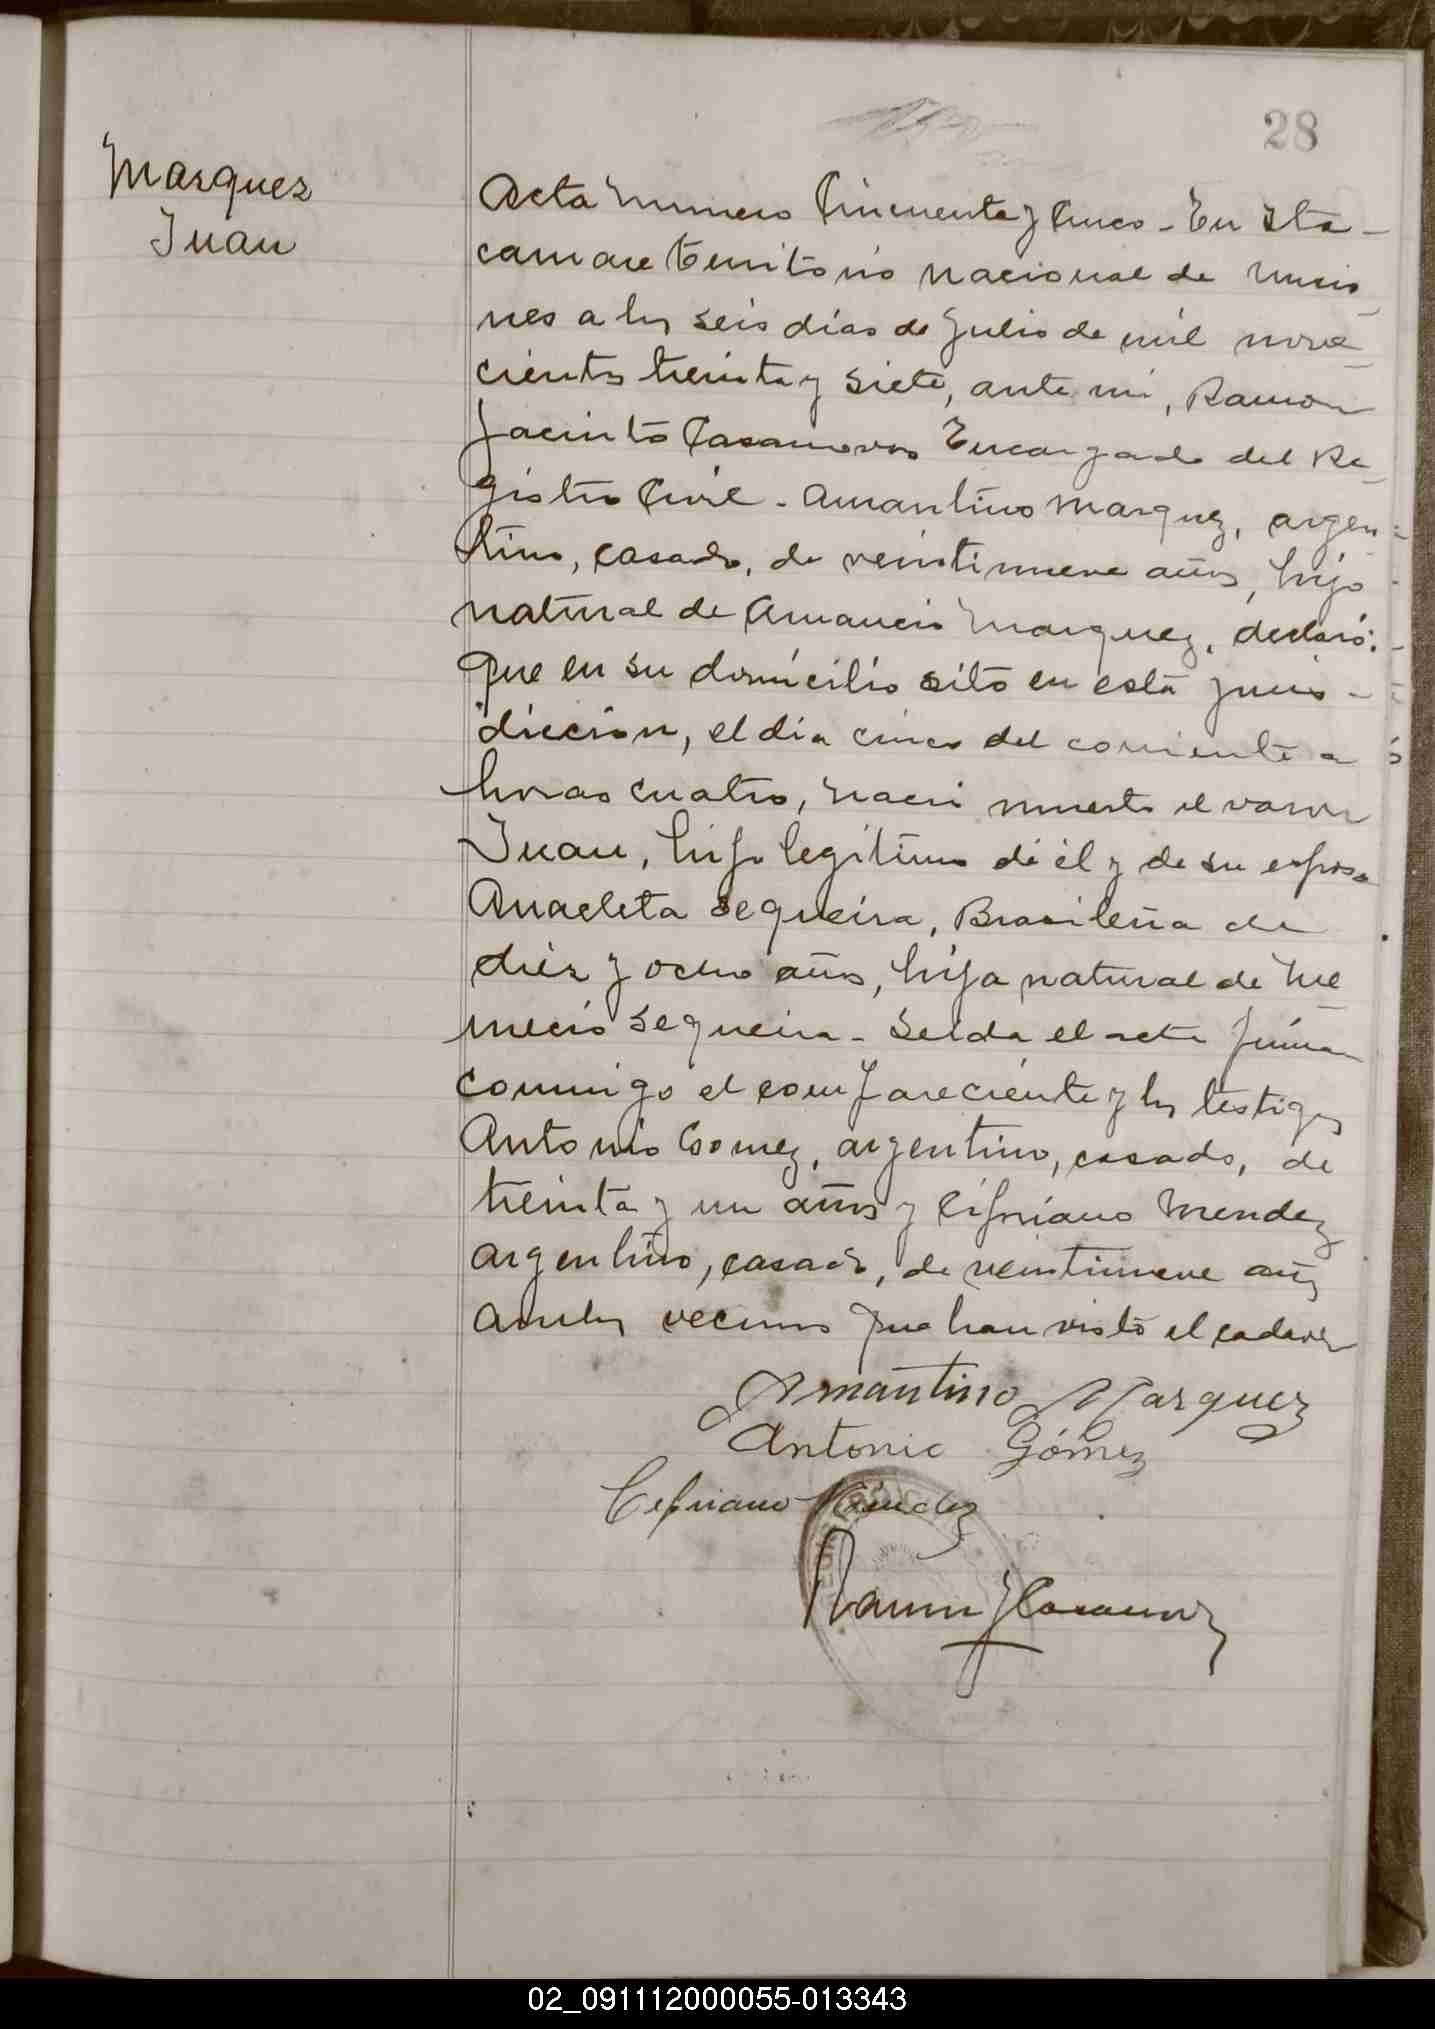 28
Marquez
Juan
Acta Numero Cincuenta y Cinco - En Ita-
caruare territorio nacional de Misio
nes a los seis dias de Julio de mil nove
cientos treinta y siete, ante mi, Ramon
Jacinto Casanovas Encargado del Re-
gistro Civil - Amantino Marquez, argen-
tino, casado, de veintinueve años, hijo
natural de Amancio Marquez, declaró:
Que en su domicilio sito en esta juris-
diccion, el dia cinco del corriente a
horas cuatro, nació muerto el varon
Juan, hijo legitimo de él y de su esposa
Anacleta Sequeira, Brasileña de
diez y ocho años, hija natural de
Sequeira - Leida el acta firman
conmigo el compareciente y los testigos
Antonio Gomez, argentino, casado, de
treinta y un años y Cipriano Mendez
argentino, casado, de veintinueve años
ambos vecinos que han visto el cadaver
Amantino Marquez
Antonio Gómez
Cipriano Méndez
Ramon J Casanovas
02_091112000055-013343